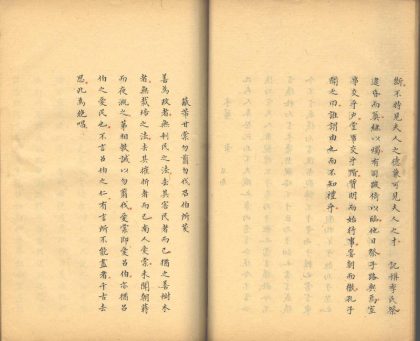 斷不特見夫人之德兼可見夫人之才　記稱季氏祭
逮昏而奠繼以燭有司跛倚以臨他日祭子路與焉室
事交乎戶堂事交乎階質明而始行事晏朝而徹孔子
聞之曰誰謂由也而不知禮乎
蔽芾甘棠勿翦勿伐召伯所茇
善為政者無利民之法去其害民者而已猶之善樹木
者無栽培之法去其摧折者而已南人愛棠未聞朝蒔
而夜溉之第相數誡以勿翦我愛棠即愛召伯亦猶召
伯之愛民也不言召伯之仁有言所不能盡者千古去
思此為絶唱